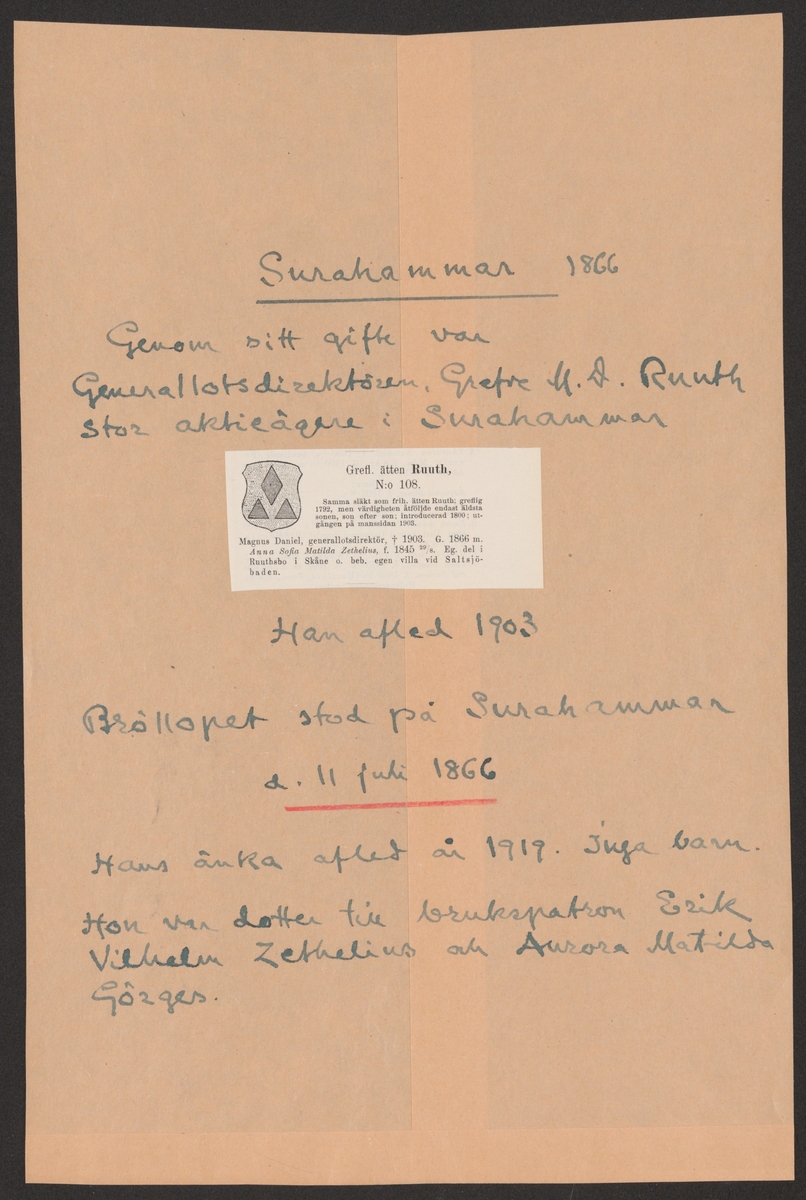 Surahammar 1866
Genom sitt gifte var
Generallotsdirektören, Grefve M. D. Ruuth
stor aktieägare i Surahammar
Grefl. ätten Ruuth,
N:o 108.
Samma släkt som frih. ätten Ruuth; greflig
1792, men värdigheten åtföljde endast äldsta
sonen, son efter son; introducerad 1800; ut-
gången på manssidan 1903.
Magnus Daniel, generallotsdirektör, † 1903. G. 1866 m.
Anna Sofia Matilda Zethelius, f. 1845 29/8. Eg. del i
Ruuthsbo i Skåne o. beb. egen villa vid Saltsjö-
baden.
Han afled 1903
Bröllopet stod på Surahammar
d. 11 juli 1866
Hans änka afled år 1919. Inga barn.
Hon var dotter till brukspatron Erik
Vilhelm Zethelius och Aurora Matilda
Görges.